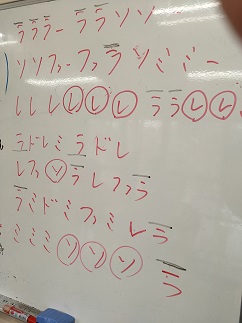 ララララーララソソ
ソソファーファラソミミー
レレレレレレララレレ
ラドレミラドレ
レファソラレファラ
ラミドミファミレラ
ミミミソソソラ